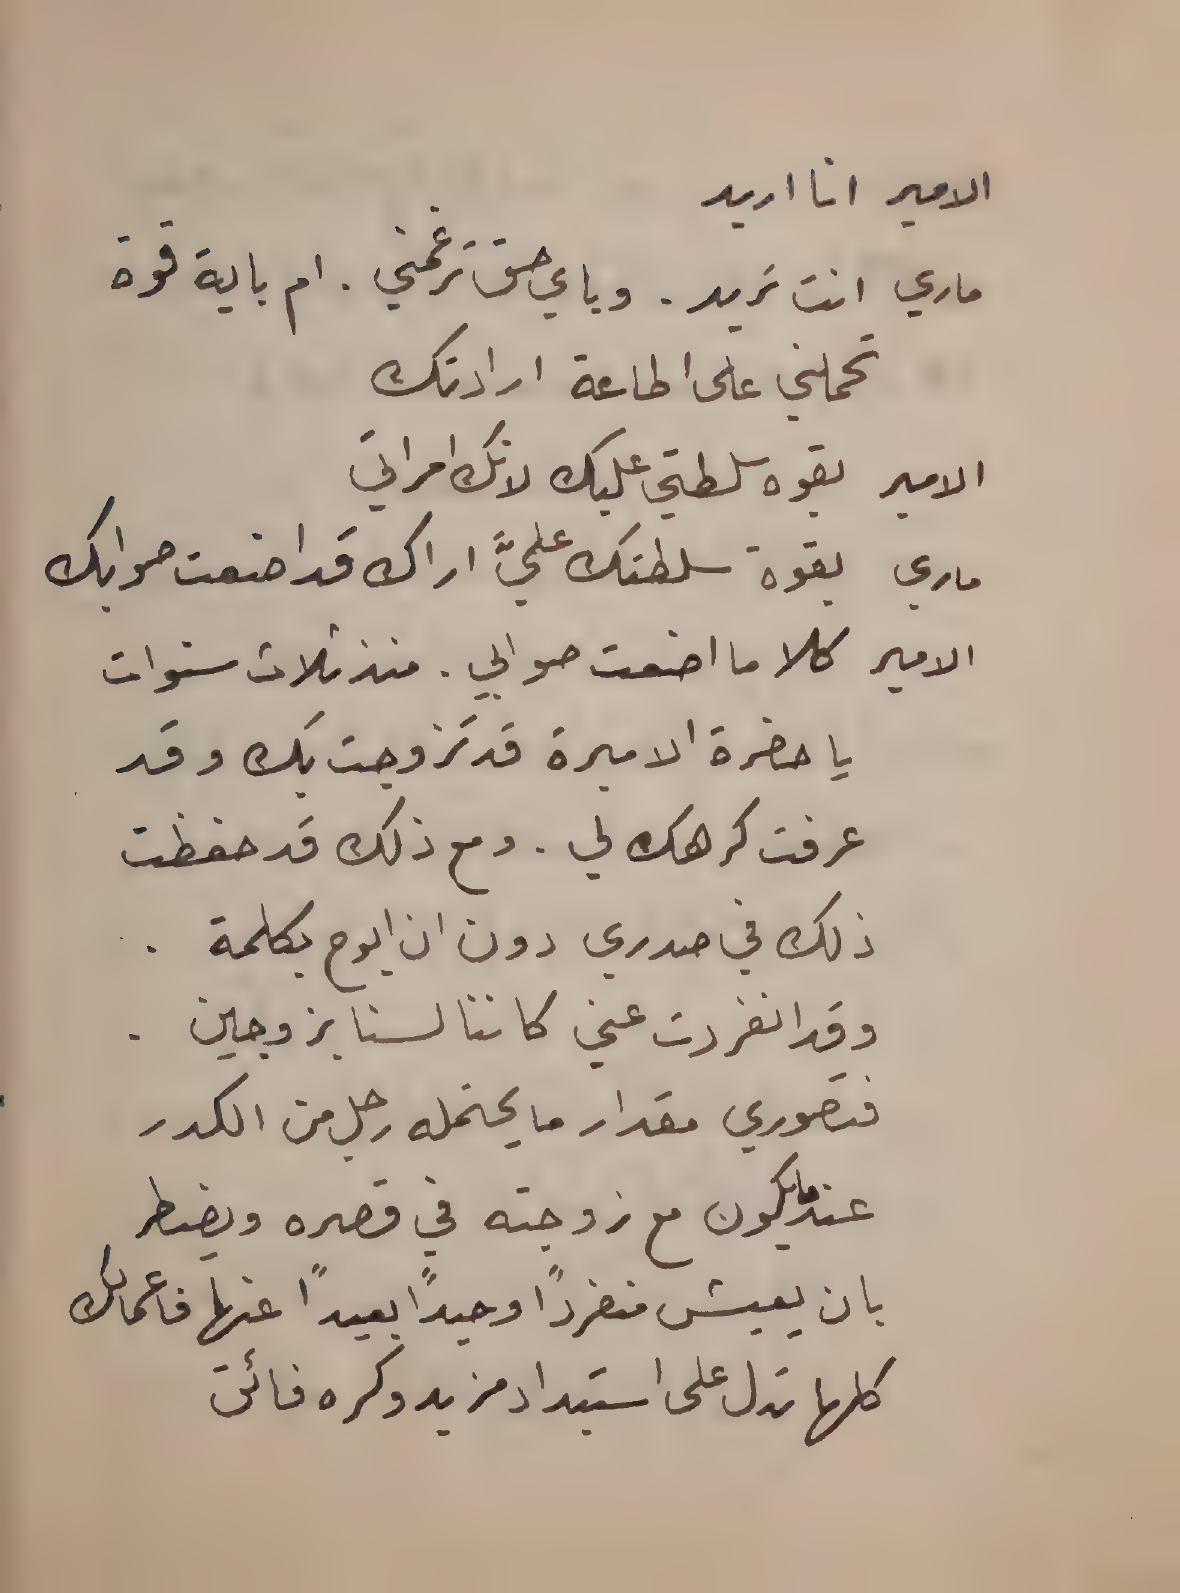 الامير انا اريد
ماري انت تريد . وباي حق ترغمني . ام باية قوة
تحملني على اطاعة ارادتك
الامير بقوه سلطتي عليك لانك امراتي
ماري بقوة سلطتك عليَّ اراك قد اضعت صوابك
الامير كلا ما اضعت صوابي . منذ ثلاث سنوات
يا حضرة الاميرة قد تزوجت بك وقد
عرفت كرهك لي . ومع ذلك قد حفظت
ذلك في صدري دون ان ابوح بكلمة .
وقد انفردت عني كاننا لسنا بزوجين .
فتصوري مقدار ما يحتمله رجل من الكدر
عندما يكون مع زوجته في قصره ويضطر
بان يعيش منفردًا وحيدًا بعيدًا عنها فاعمالك
كلها تدل على استبداد مزيد وكره فائق